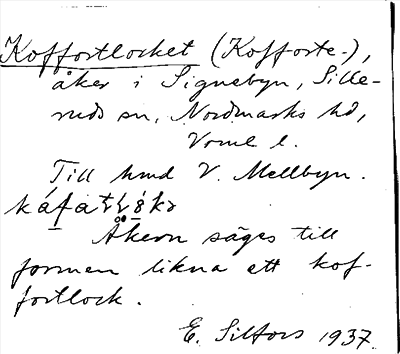 Koffortlocket (Kofforte-),
åker i Signebyn, Sille-
ruds sn, Nordmarks hd,
Vrml l.
Till hmd V. Mellbyn.
Åkern säges till
formen likna ett kof-
fortlock.
E. Silfors 1937.